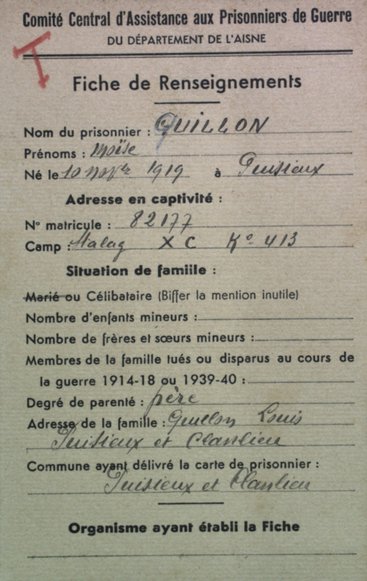 Comité Central d'Assistance aux Prisonniers de Guerre
DU DÉPARTEMENT DE L'AISNE
T
Fiche de Renseignements
Nom du prisonnier : QUILLON
Prénoms : Moïse
Né le 10 9bre 1919 à Puisieux
Adresse en captivité :
N° matricule : 82177
Camp : Stalag X C Ko 413
Situation de famille :
Marié ou Célibataire (Biffer la mention inutile)
Nombre d'enfants mineurs :
Nombre de frères et sœurs mineurs :
Membres de la famille tués ou disparus au cours de
la guerre 1914-18 ou 1939-40 :
Degré de parenté : père
Adresse de la famille : Quillon Louis
Puisieux et Clanlieu
Commune ayant délivré la carte de prisonnier :
Puisieux et Clanlieu
Organisme ayant établi la Fiche